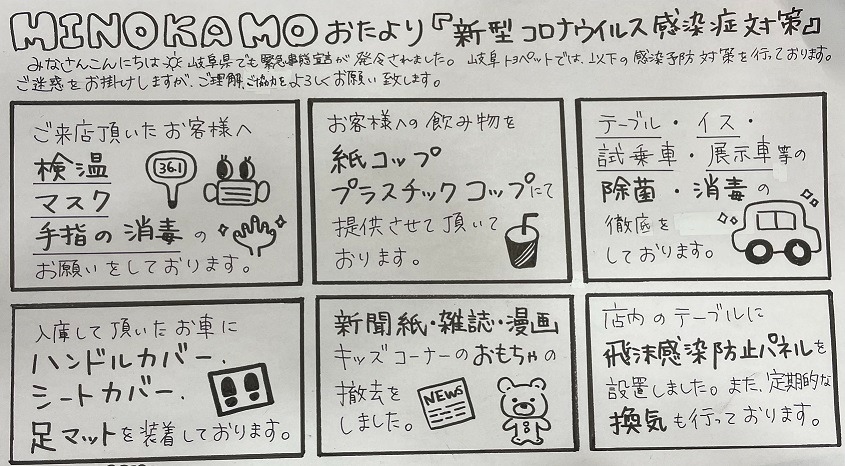 MINOKAMO おたより『新型コロナウイルス感染症対策』
みなさんこんにちは 岐阜県でも緊急事態宣言が発令されました。岐阜トヨペットでは、以下の感染予防対策を行っております。
ご迷惑をお掛けしますが、ご理解、ご協力をよろしくお願い致します。
ご来店頂いたお客様へ
検温
36.1
マスク
手指の消毒の
お願いをしております。
お客様への飲み物を
紙コップ
プラスチックコップにて
提供させて頂いて
おります。
テーブル・イス・
試乗車・展示車等の
除菌・消毒の
徹底を
しております。
入庫して頂いたお車に
ハンドルカバー、
シートカバー、
足マットを装着しております。
新聞紙・雑誌・漫画
キッズコーナーのおもちゃの
撤去を
しました。
NEWS
店内のテーブルに
飛沫感染防止パネルを
設置しました。また、定期的な
換気も行っております。